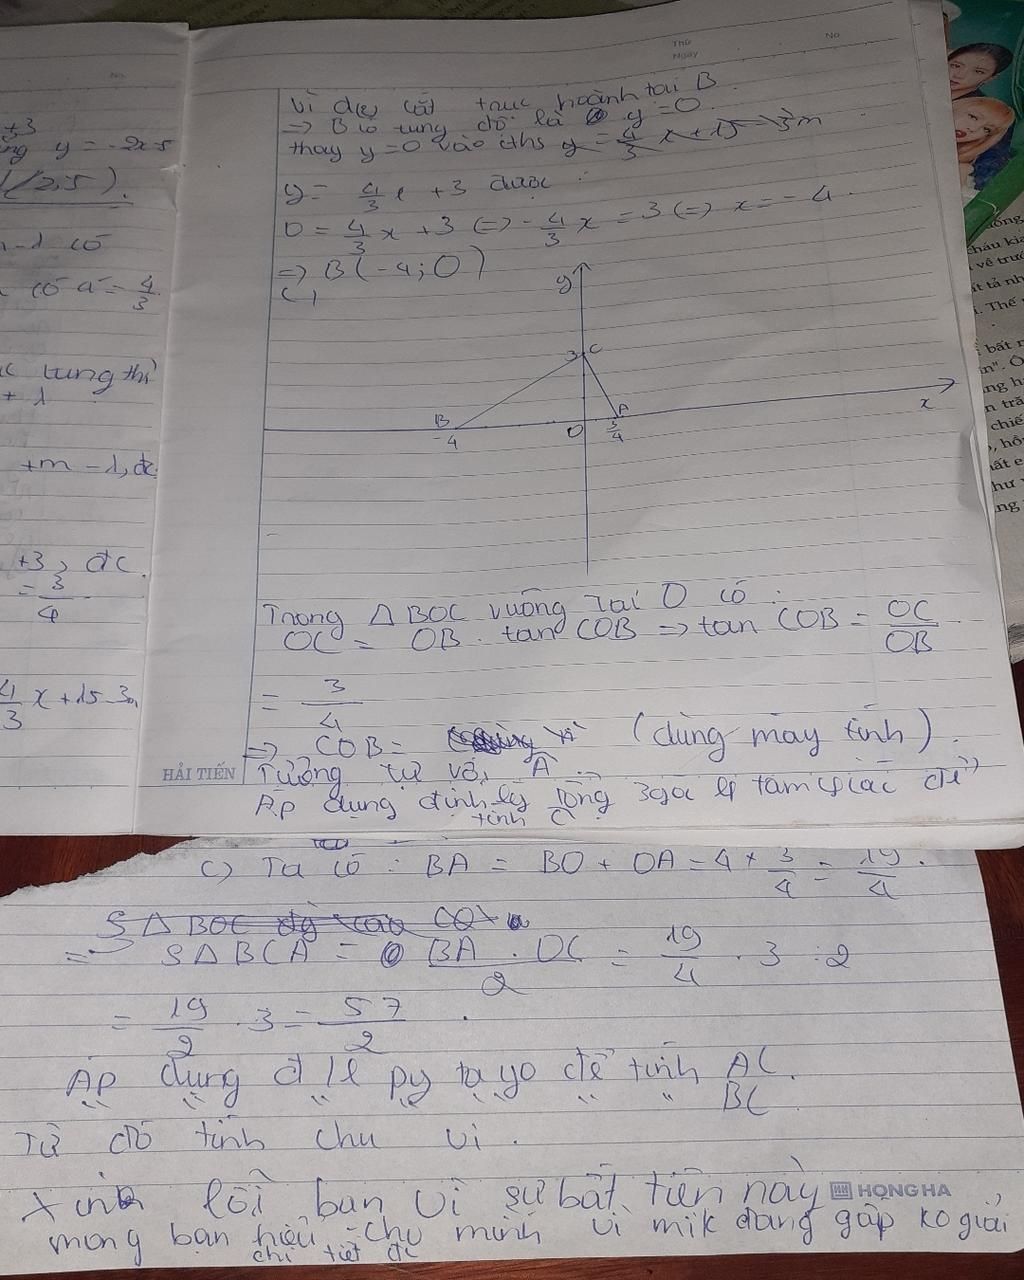 Thứ
Ngày
No
No
+3
y = -2x-5
(2,5).
m-1 có
có a = 4/3
tung thì
+ 1
+m - 1, đc
+3, đc.
= 3/4
4/3 x + 15 - 3m
Vì d(2) cắt trục hoành tại B
=> B có tung độ là y = 0
thay y=0 vào cths y = 4/3 x + 15 - 3m
y = 4/3 x + 3 được :
0 = 4/3 x + 3 (=> - 4/3 x = 3 (=> x = - 4.
=> B(-4; 0)
C,
y
3 C
B A
-4 O 3/4 x
Trong Δ BOC vuông tại O có :
OC = OB . tan COB => tan COB = OC/OB
= 3/4
=> COB = (dùng máy tính).
Tương tự với A
Áp dụng định lý tổng 3 góc tam giác để
tính C
HẢI TIẾN
c) Ta có : BA = BO + OA = 4 + 3/4 = 19/4.
S Δ BOC cao
=> S Δ BCA = BA . OC / 2 = 19/4 . 3 : 2
= 19/2 . 3 = 57/2 .
Áp dụng đ lí py ta go để tính AC.
BC
Từ đó tính chu vi.
Xin lỗi bạn vì sự bất tiện này
HONG HA
mong bạn hiểu cho mình vì mik đang gấp ko giải
chi tiết đc